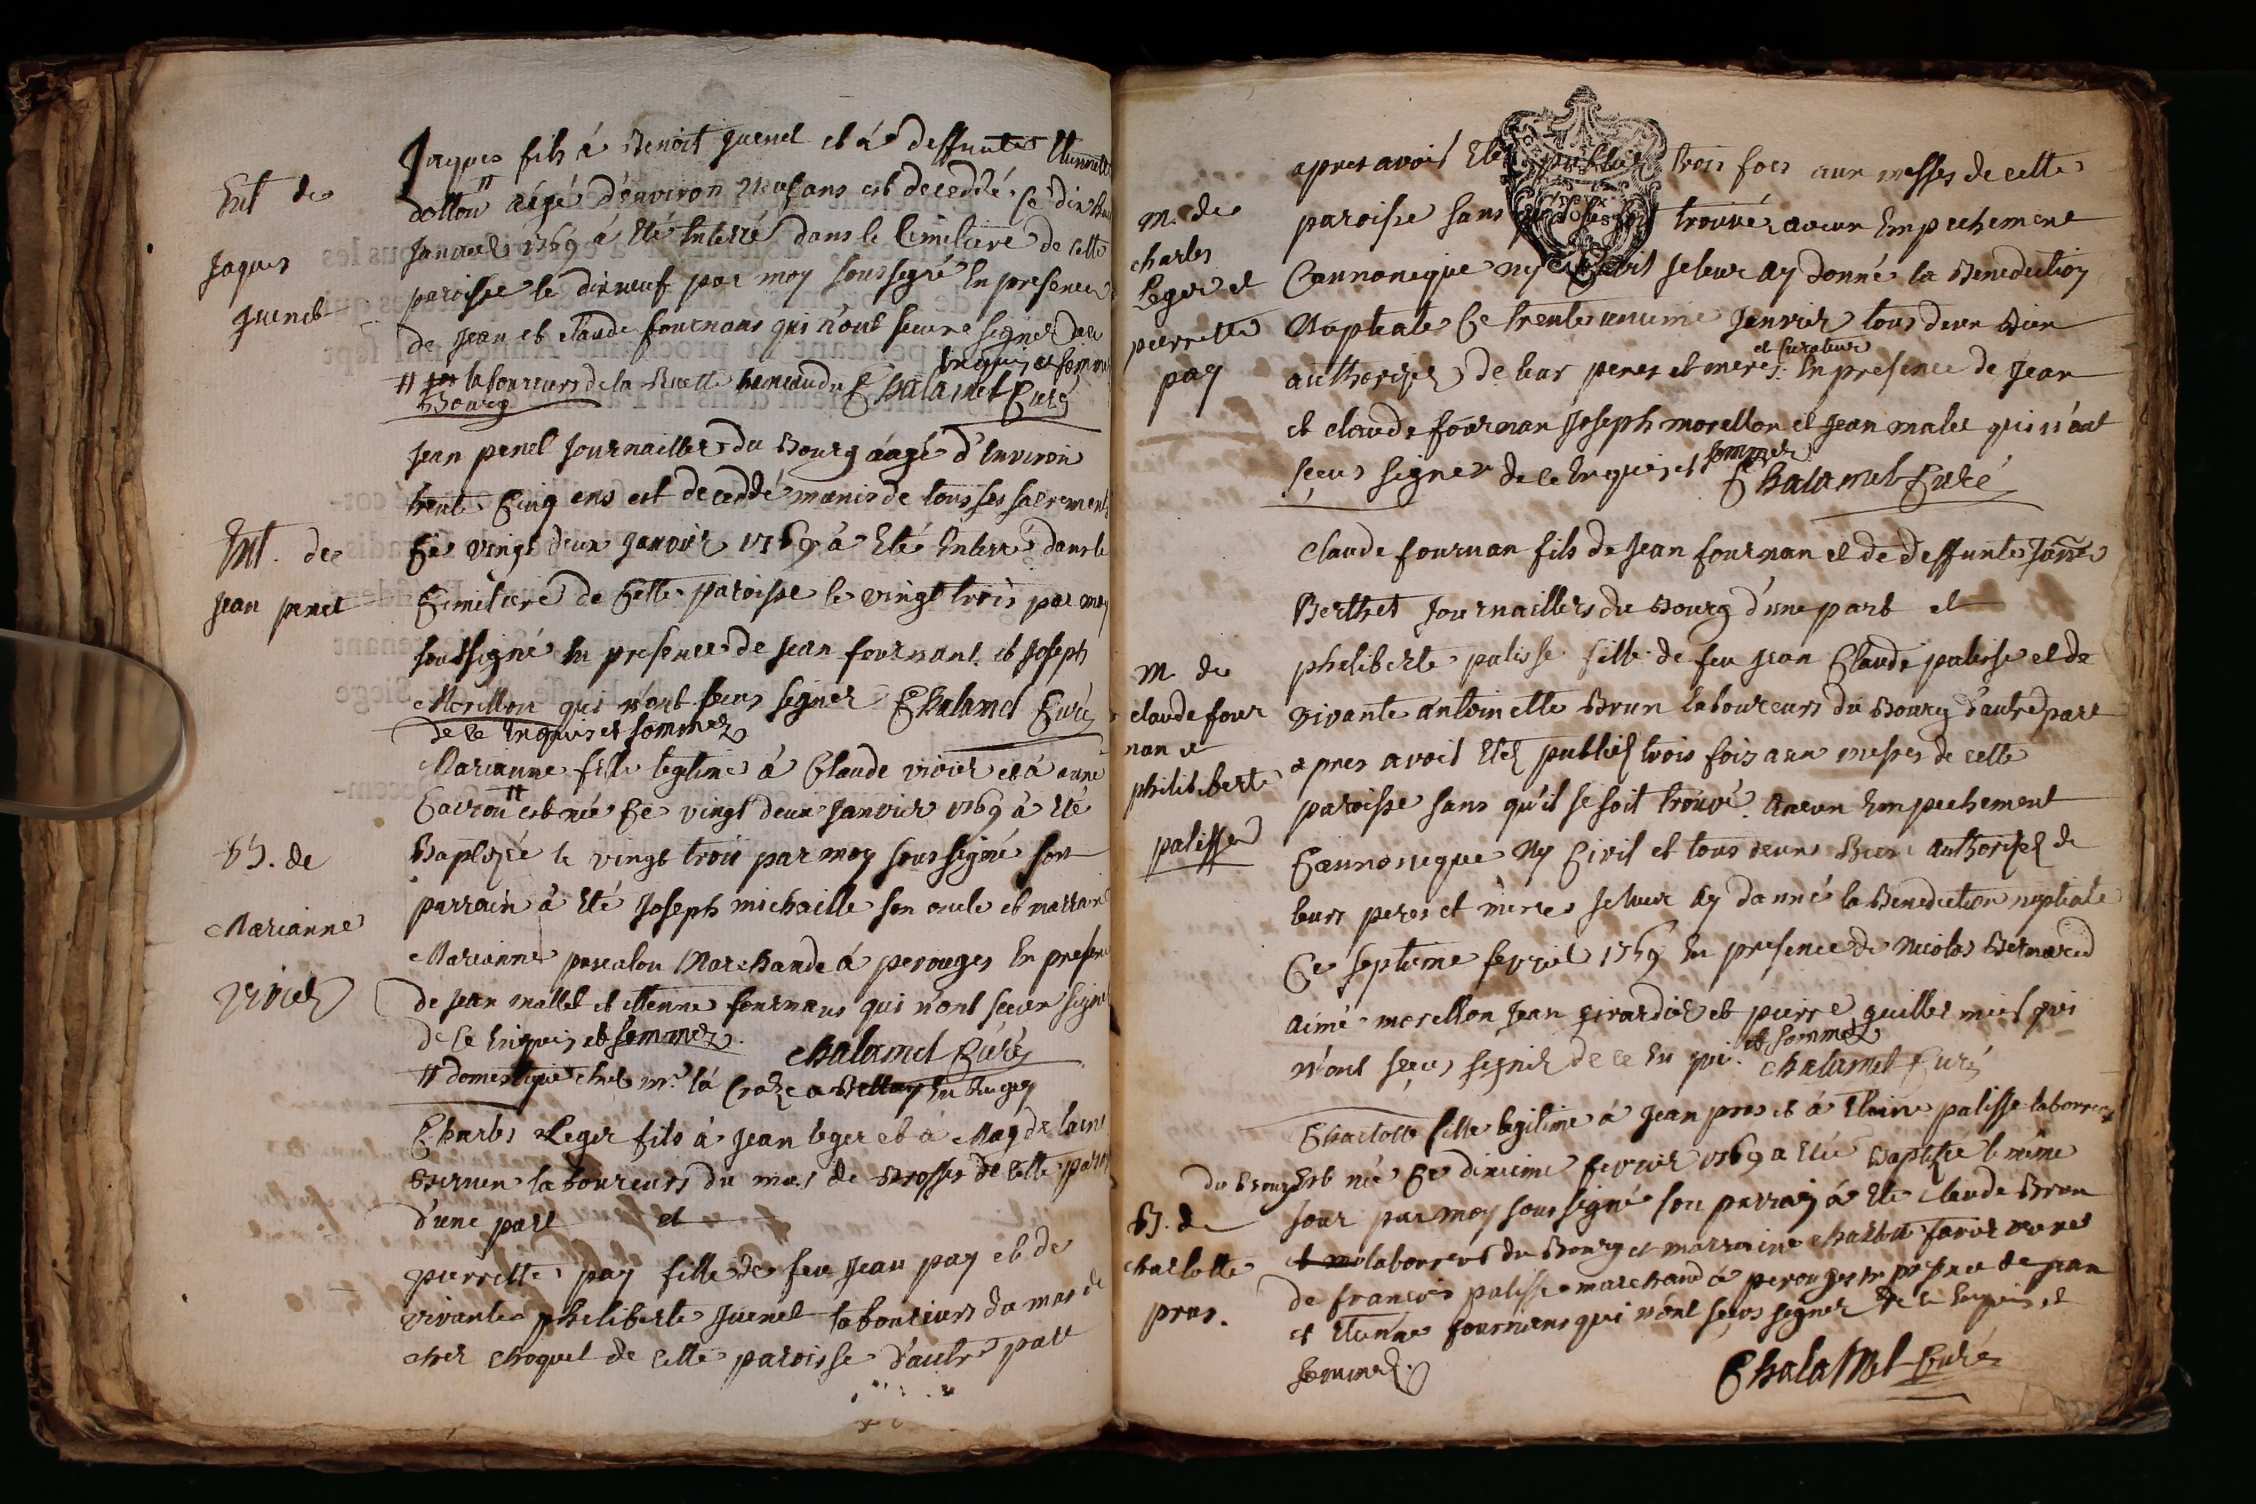 Ent de
Jaques
Juenet
Jaques fils à Benoit Juenet et à deffunte
dollon # agé d'environ neuf ans est decedé ce dix
Janvier 1769 à Eté Enterré dans le Cimetiere de cette
paroisse le dixneuf par moy soussigné En presence
de Jean et Claude fournans qui n'ont sçeu signer de ce
Enquis et sommé
# laboureurs de la hameau du Chalamel Curé
Bourg
Ent. de
Jean penet
Jean penet Journaillier du Bourg áagé d'Environ
trente Cinq ens est decedé mœnis de tous ses sacrements
Ce vingt deux Janvier 1769 à Eté Enterré dans le
Cimetiere de Cette paroisse le vingt trois par moy
soussigné En presence de Jean fournant et Joseph
Morellon qui n'ont sçeus signer Chalamel Curé
de ce Enquis et sommez
B. de
Marianne
vivier
Marianne fille legitime à Claude vivier et à anne
# est née Ce vingt deux Janvier 1769 à Eté
Baptizée le vingt trois par moy soussigné son
parrain à Eté Joseph michaille son oncle et marraine
Marianne pascalon Marchande à perouges En presence
de Jean mallet et Etienne fournans qui n'ont sçeux signer
de ce Enquis et sommez. Chalamel Curé
# domestique chez mr. la a Bellay En Bugey
Charles Leger fils à Jean leger et à Magdelaine
laboureurs du mas de Brosses de cette paroisse
d'une part et
pierrette pay fille de feu Jean pay et de
vivante pheliberte Juenet laboureurs du mas de
cher choquet de cette paroisse d'autre part
m. de
charles
Leger et
pierrette
pay
apres avoir Etez publiez trois fois aux messes de cette
paroisse sans qu'il se soit trouvé aucun Empechement
Cannonique ny Civil Je leur ay donné la Benediction
Nuptiale Ce trente unieme Janvier tous deux Bien
et Curateur
authorizez de leur peres et meres. En presence de Jean
et claude fournan Joseph morellon et Jean malet qui n'ont
sçeus signer de ce Enquis et sommez Chalamel Curé
M. de
claude four
nan et
philiberte
palisse
Claude fournan fils de Jean fournan et de deffunte Janne
Berthet Journailliers du Bourg d'une part et
pheliberte palisse fille de feu Jean Claude palisse et de
vivante antoinette Brun laboureurs du Bourg d'autre part
apres avoir Etez publiez trois fois aux messes de cette
paroisse sans qu'il se soit trouvé aucun Empechement
Cannonique Ny Civil et tous deux Bien authorizez de
leurs peres et meres Je leur ay donné la Benediction nuptiale
Ce septieme fevrier 1769 En presence de Nicolas Bernard
aimé morellon Jean girardier et pierre qui
n'ont sçeus signer de ce Enquis. et sommez Chalamel Curé
B. de
charlotte
pras.
Charlotte fille legitime à Jean pras et à palisse laboureurs
du Bourg Est née Ce dixieme fevrier 1769 a Eté Baptizée le même
jour par moy soussigné son parrain à Eté claude Brun
laboureur du Bourg et marraine charlotte veuve
de francois palisse marchand à perouges En presence de Jean
et Etienne fournans qui n'ont sçeus signer de ce Enquis et
sommez Chalamel Curé